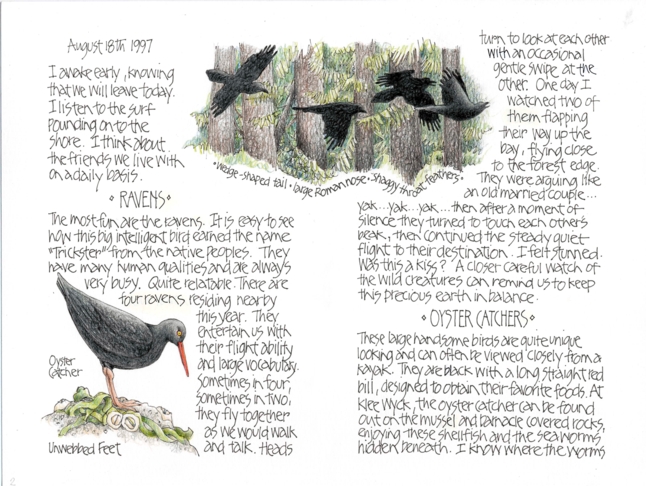 August 18th 1997
I awake early, knowing
that we will leave today.
I listen to the surf
pounding on to the
shore. I think about
the friends we live with
on a daily basis.
• RAVENS •
The most fun are the ravens. It is easy to see
how this big intelligent bird earned the name
"Trickster" from the native peoples. They
have many human qualities and are always
very busy. Quite relatable. There are
four ravens residing nearby
this year. They
entertain us with
their flight ability
and large vocabulary.
Sometimes in four,
sometimes in two,
they fly together
as we would walk
and talk. Heads
Oyster
Catcher
Unwebbed Feet
• wedge-shaped tail • large Roman nose • shaggy throat feathers •
turn to look at each other
with an occasional
gentle swipe at the
other. One day I
watched two of
them flapping
their way up the
bay, flying close
to the forest edge.
They were arguing like
an old married couple...
yak...yak...yak...then after a moment of
silence they turned to touch each others
beak, then continued the steady quiet
flight to their destination. I felt stunned.
Was this a kiss? A closer careful watch of
the wild creatures can remind us to keep
this precious earth in balance.
• OYSTER CATCHERS •
These large handsome birds are quite unique
looking and can often be viewed closely from a
kayak. They are black with a long straight red
bill, designed to obtain their favorite foods. At
Klee Wyck, the oyster catcher can be found
out on the mussel and barnacle covered rocks,
enjoying these shellfish and the sea worms
hidden beneath. I know where the worms
2